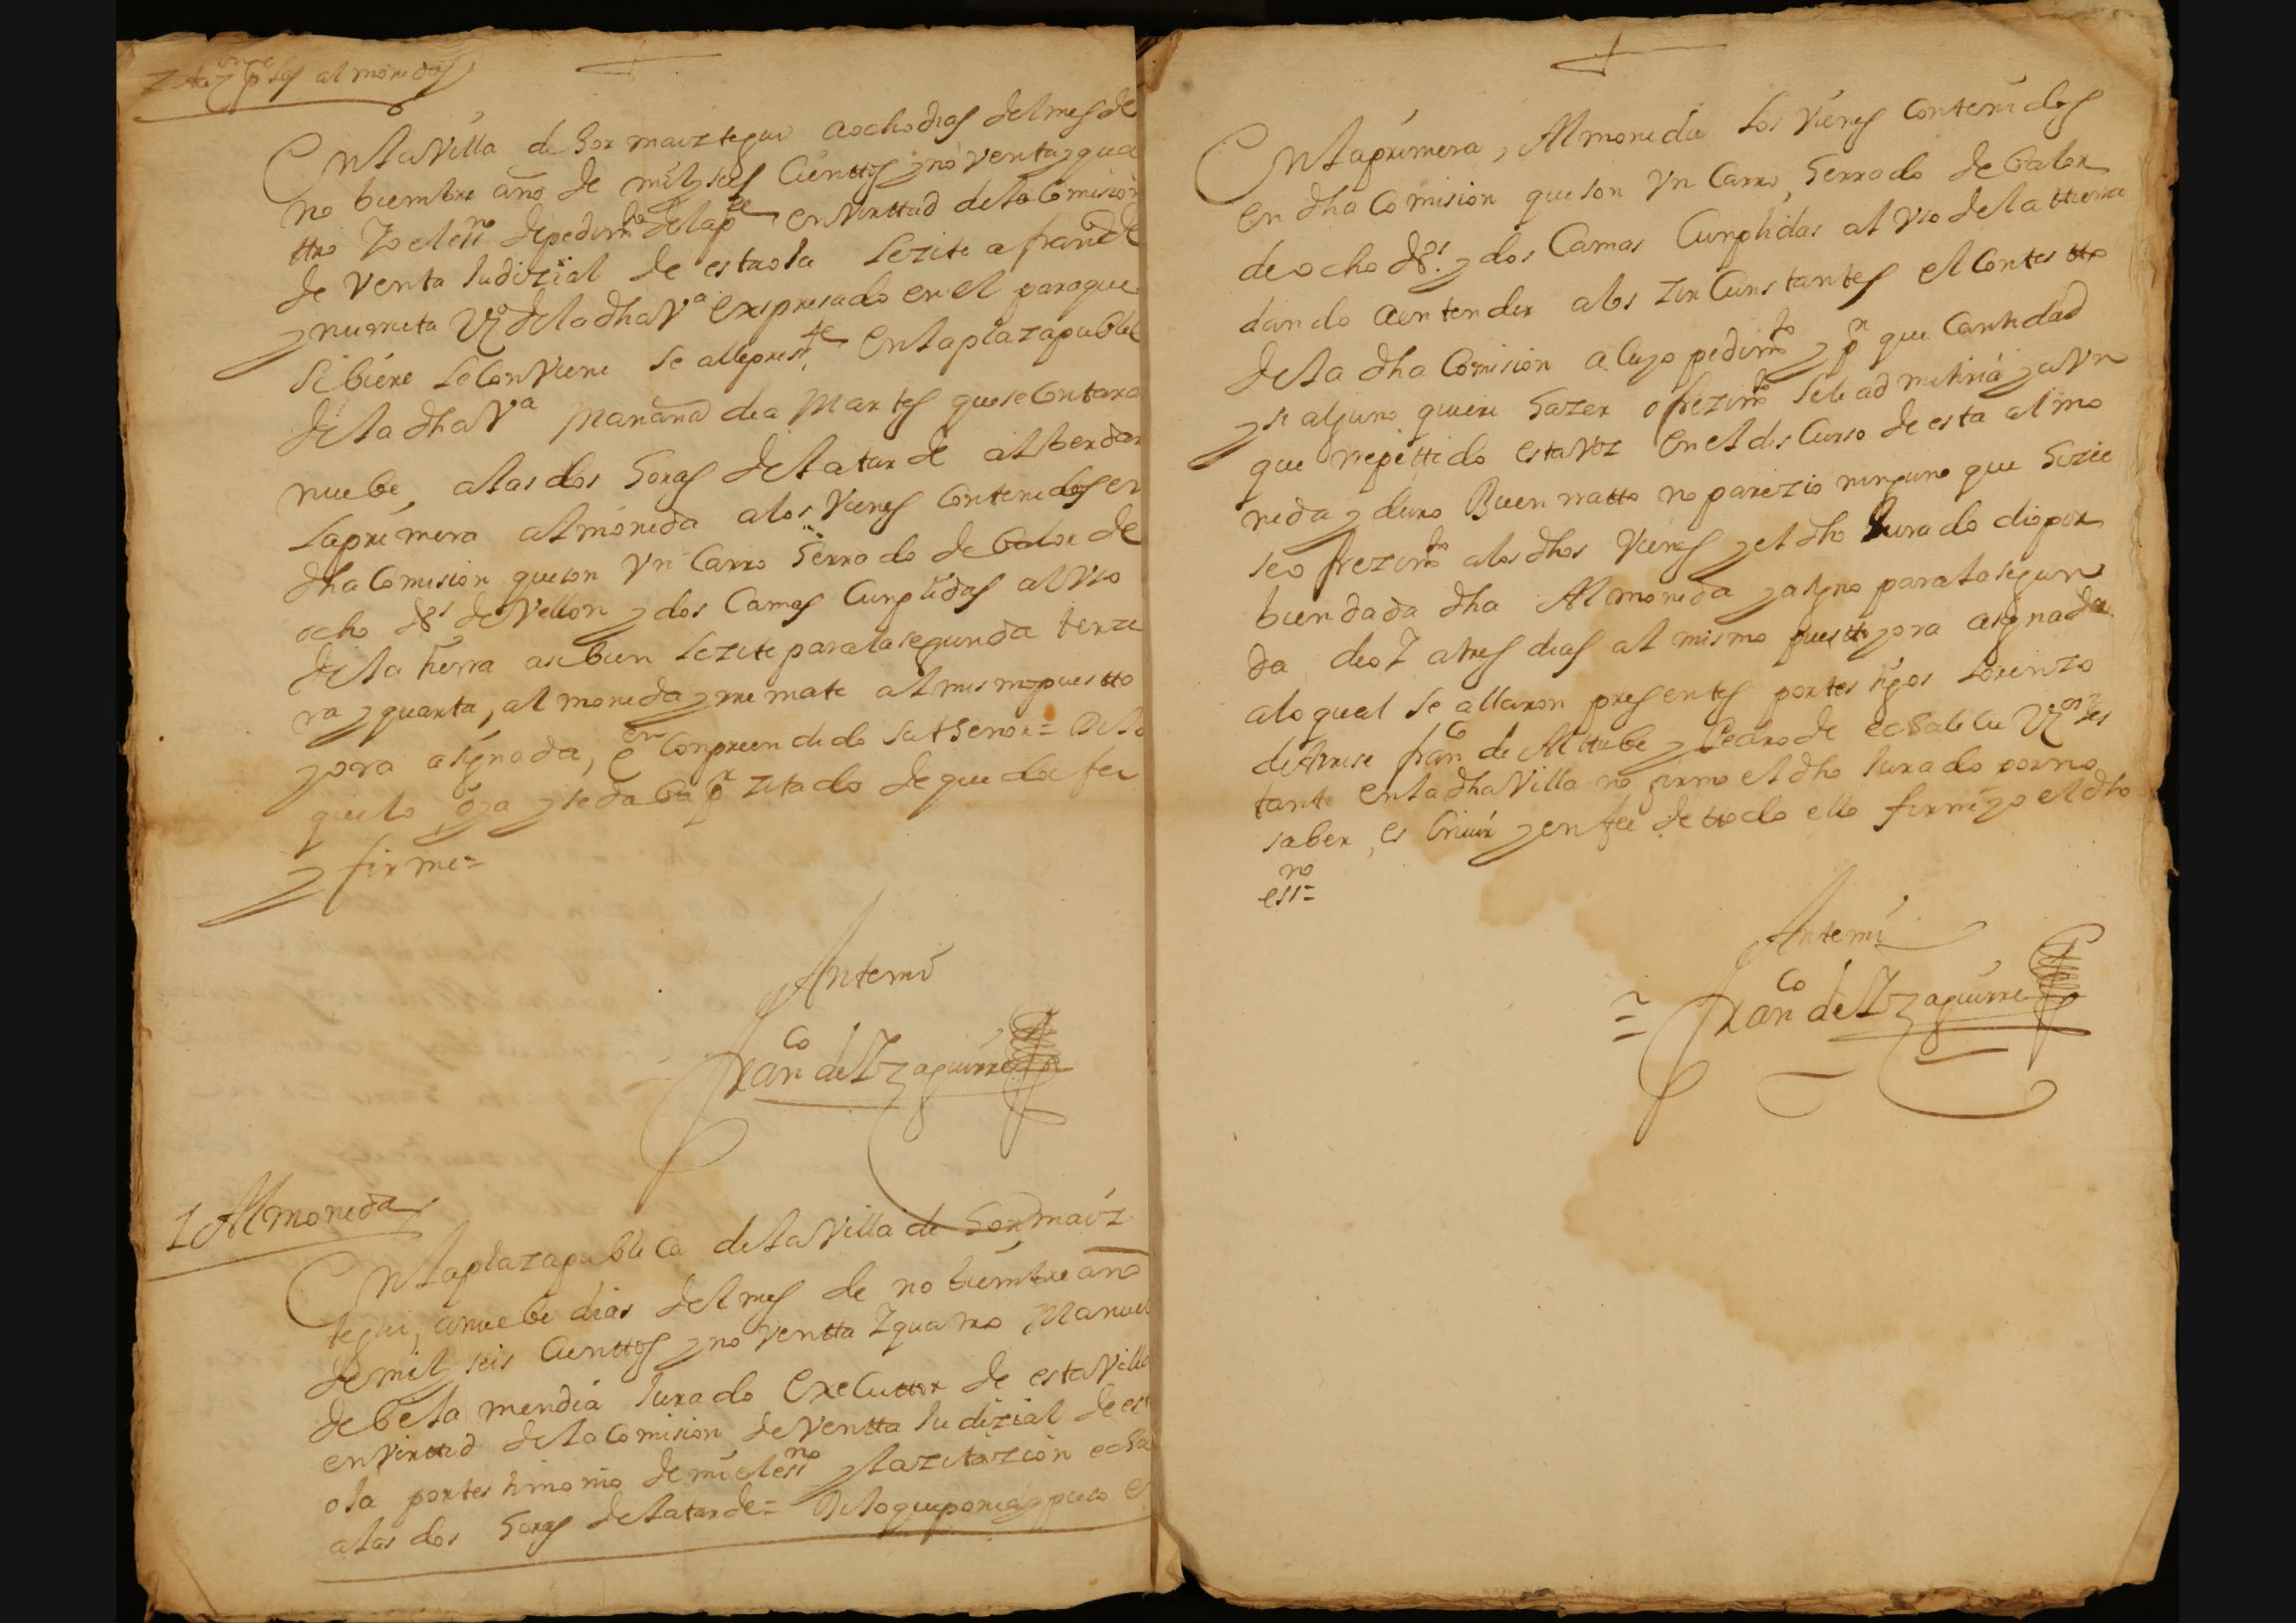 Zitazon pa las almonedas
En la Villa de hormaiztegui a ocho dias del mes de
nobiembre año de mil y seis Cienttos y noventa y qua
ttro Yo el essno de pedimto de la pte en virttud de la Comision
de Venta Judizial de esta ola Lezite a franco de
y murueta Vo de la dha Va expresado en el para que
si biere le Conviene se alle presste En la plaza publi
de la dha Va Mañana dia Martes que se Contara
nuebe, a las dos horas de la tarde al ber dar
La primera almoneda a los Vienes Contenidos en
dha Comision que son Vn Carro herrado de balor de
ocho ds de Vellon y dos Camas Cunplidas al Vso
de la tierra asi bien Lezite para la segunda terze
ra y quarta, almoneda y rremate al mismo puestto
y ora asignada,
que lo oya y se daba pr Zitado de que doi fee
y firme=
Ante mi
Franco de Yzaguirre
1 Almoneda
En la plaza publica de la Villa de hormaiz
tegui, a nuebe dias del mes de nobiembre año
de mil y seis Cienttos y noventta Y quatro Manuel
de belamendia Jurado Executtor de esta Villa
en Virttud de la Comision de Ventta Judizial de est
ola por testimonio de mi el essno y la zitazion echa
a las dos horas de la tarde= De lo que ponia y puso e
En la primera, Almoneda Los Vienes Contenidos
en dha Comision que son Vn Carro, herrado de balor
de ocho ds y dos Camas Cunplidas al Vso de la ttierra
dando a entender a los Zircunstantes el Contestto
de la dha Comision a Cuyo pedimto y pr que Cantidad
y si alguno quiere hazer ofrezimto se le admitiria y aun
que rrepettido esta voz En el disCurso de esta almo
neda y duro Buen rratto no parezio ninguno que hizie
se ofrezimto a los dhos Vienes y el dho Jurado dio por
bien dada dha Almoneda y asigno para la segun
da de oY a tres dias al mismo puestto y ora asignada
a lo qual se allaron presentes por testigos Lorenzo
de Arrese franco de Alttube y Pedro de echabe Cu Vos y es
tantes en la dha Villa no firmo el dho Jurado por no
saber, esCriuir y en fee de ttodo ello firme yo el dho
essno=
Ante mi
Franco de Yzaguirre